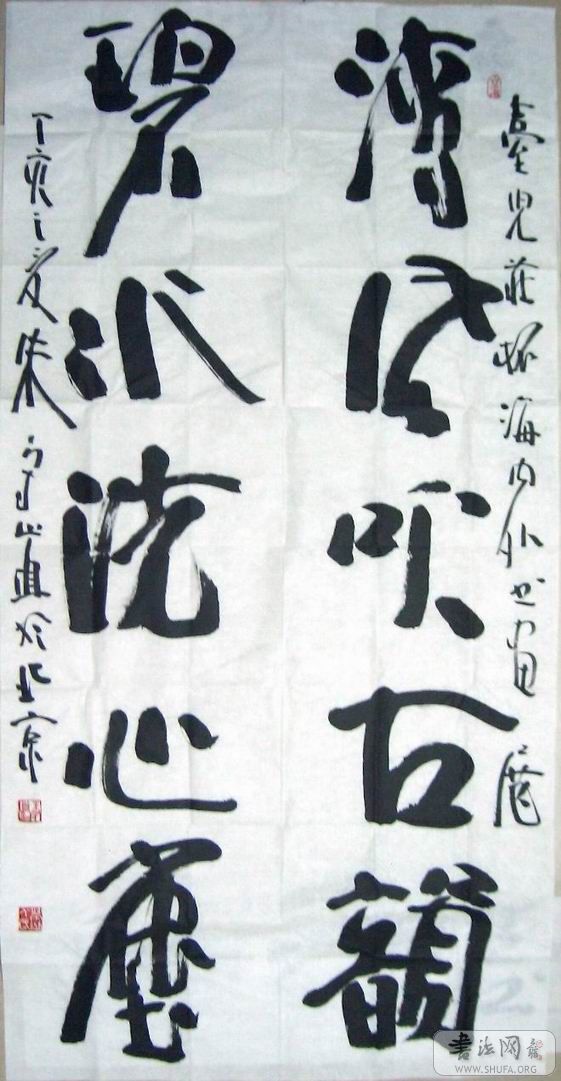 臺兒莊杯海内外書畫展
清風吹古韻
碧水洗心塵
丁亥之夏朱守道於北京
書法网
WWW.SHUFA.ORG